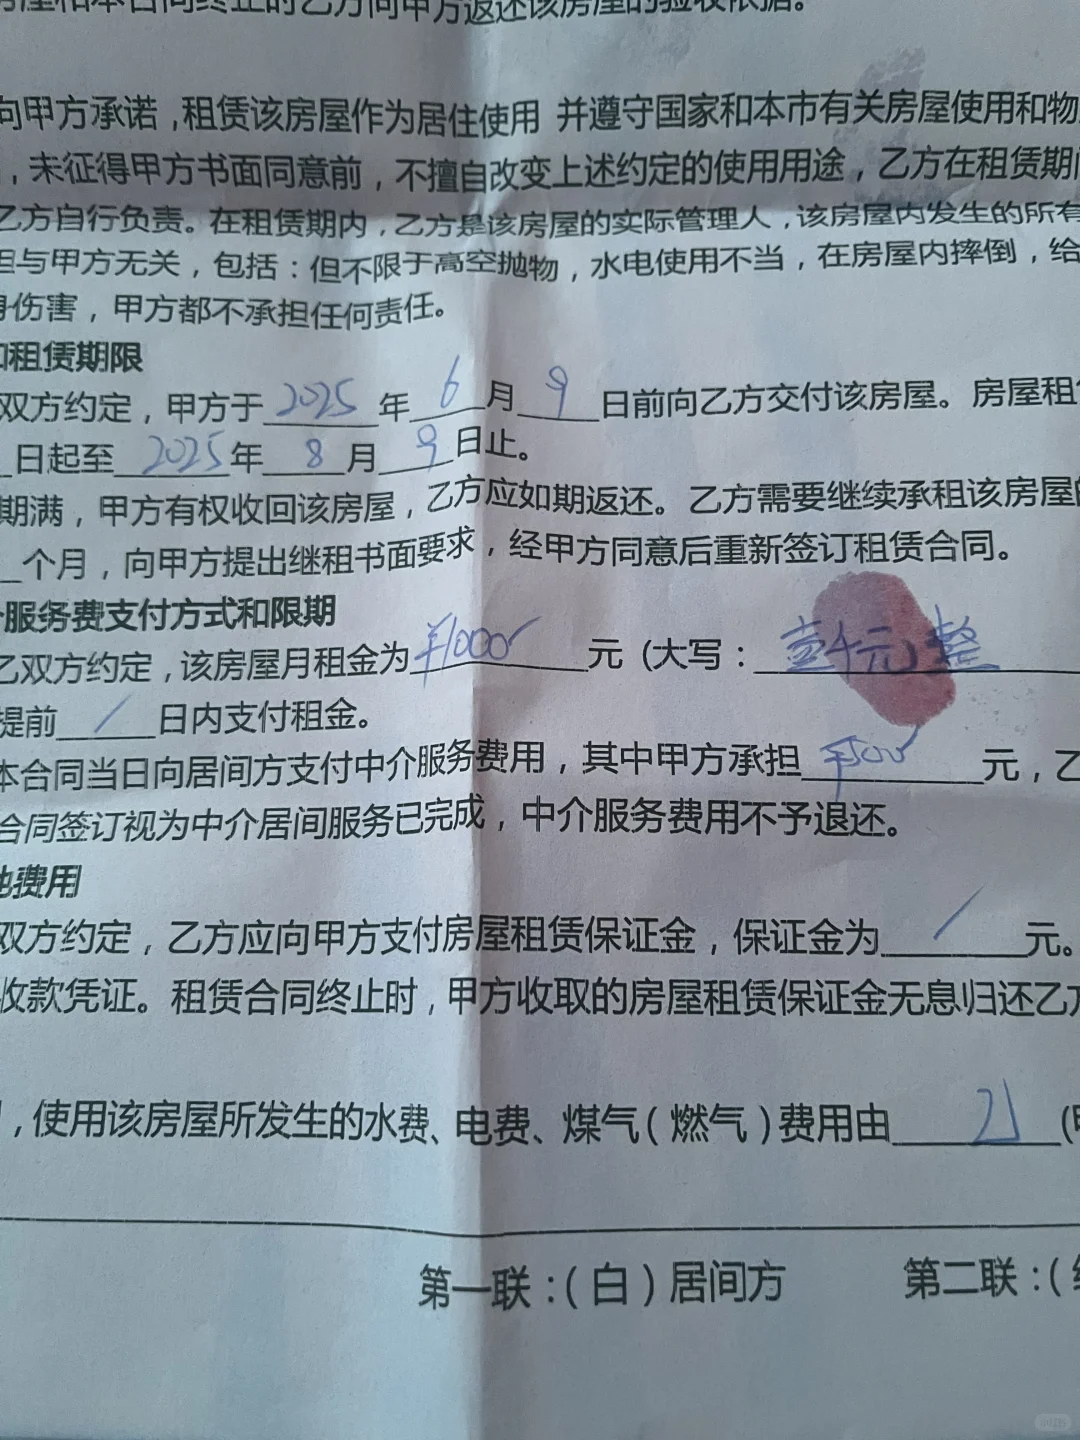 房屋和本合同终止时乙方向甲方返还该房屋的验收依据。
向甲方承诺，租赁该房屋作为居住使用 并遵守国家和本市有关房屋使用和物
，未征得甲方书面同意前，不擅自改变上述约定的使用用途，乙方在租赁期间
乙方自行负责。在租赁期内，乙方是该房屋的实际管理人，该房屋内发生的所有
担与甲方无关，包括：但不限于高空抛物，水电使用不当，在房屋内摔倒，给
身伤害，甲方都不承担任何责任。
和租赁期限
双方约定，甲方于2025年6月9日前向乙方交付该房屋。房屋租
日起至2025年8月9日止。
期满，甲方有权收回该房屋，乙方应如期返还。乙方需要继续承租该房屋的
个月，向甲方提出继租书面要求，经甲方同意后重新签订租赁合同。
服务费支付方式和限期
乙双方约定，该房屋月租金为¥1000元 (大写：壹千元整
提前/日内支付租金。
本合同当日向居间方支付中介服务费用，其中甲方承担¥500元，乙
合同签订视为中介居间服务已完成，中介服务费用不予退还。
他费用
双方约定，乙方应向甲方支付房屋租赁保证金，保证金为/元。
收款凭证。租赁合同终止时，甲方收取的房屋租赁保证金无息归还乙方
，使用该房屋所发生的水费、电费、煤气（燃气）费用由乙(甲
第一联：（白）居间方 第二联：（红